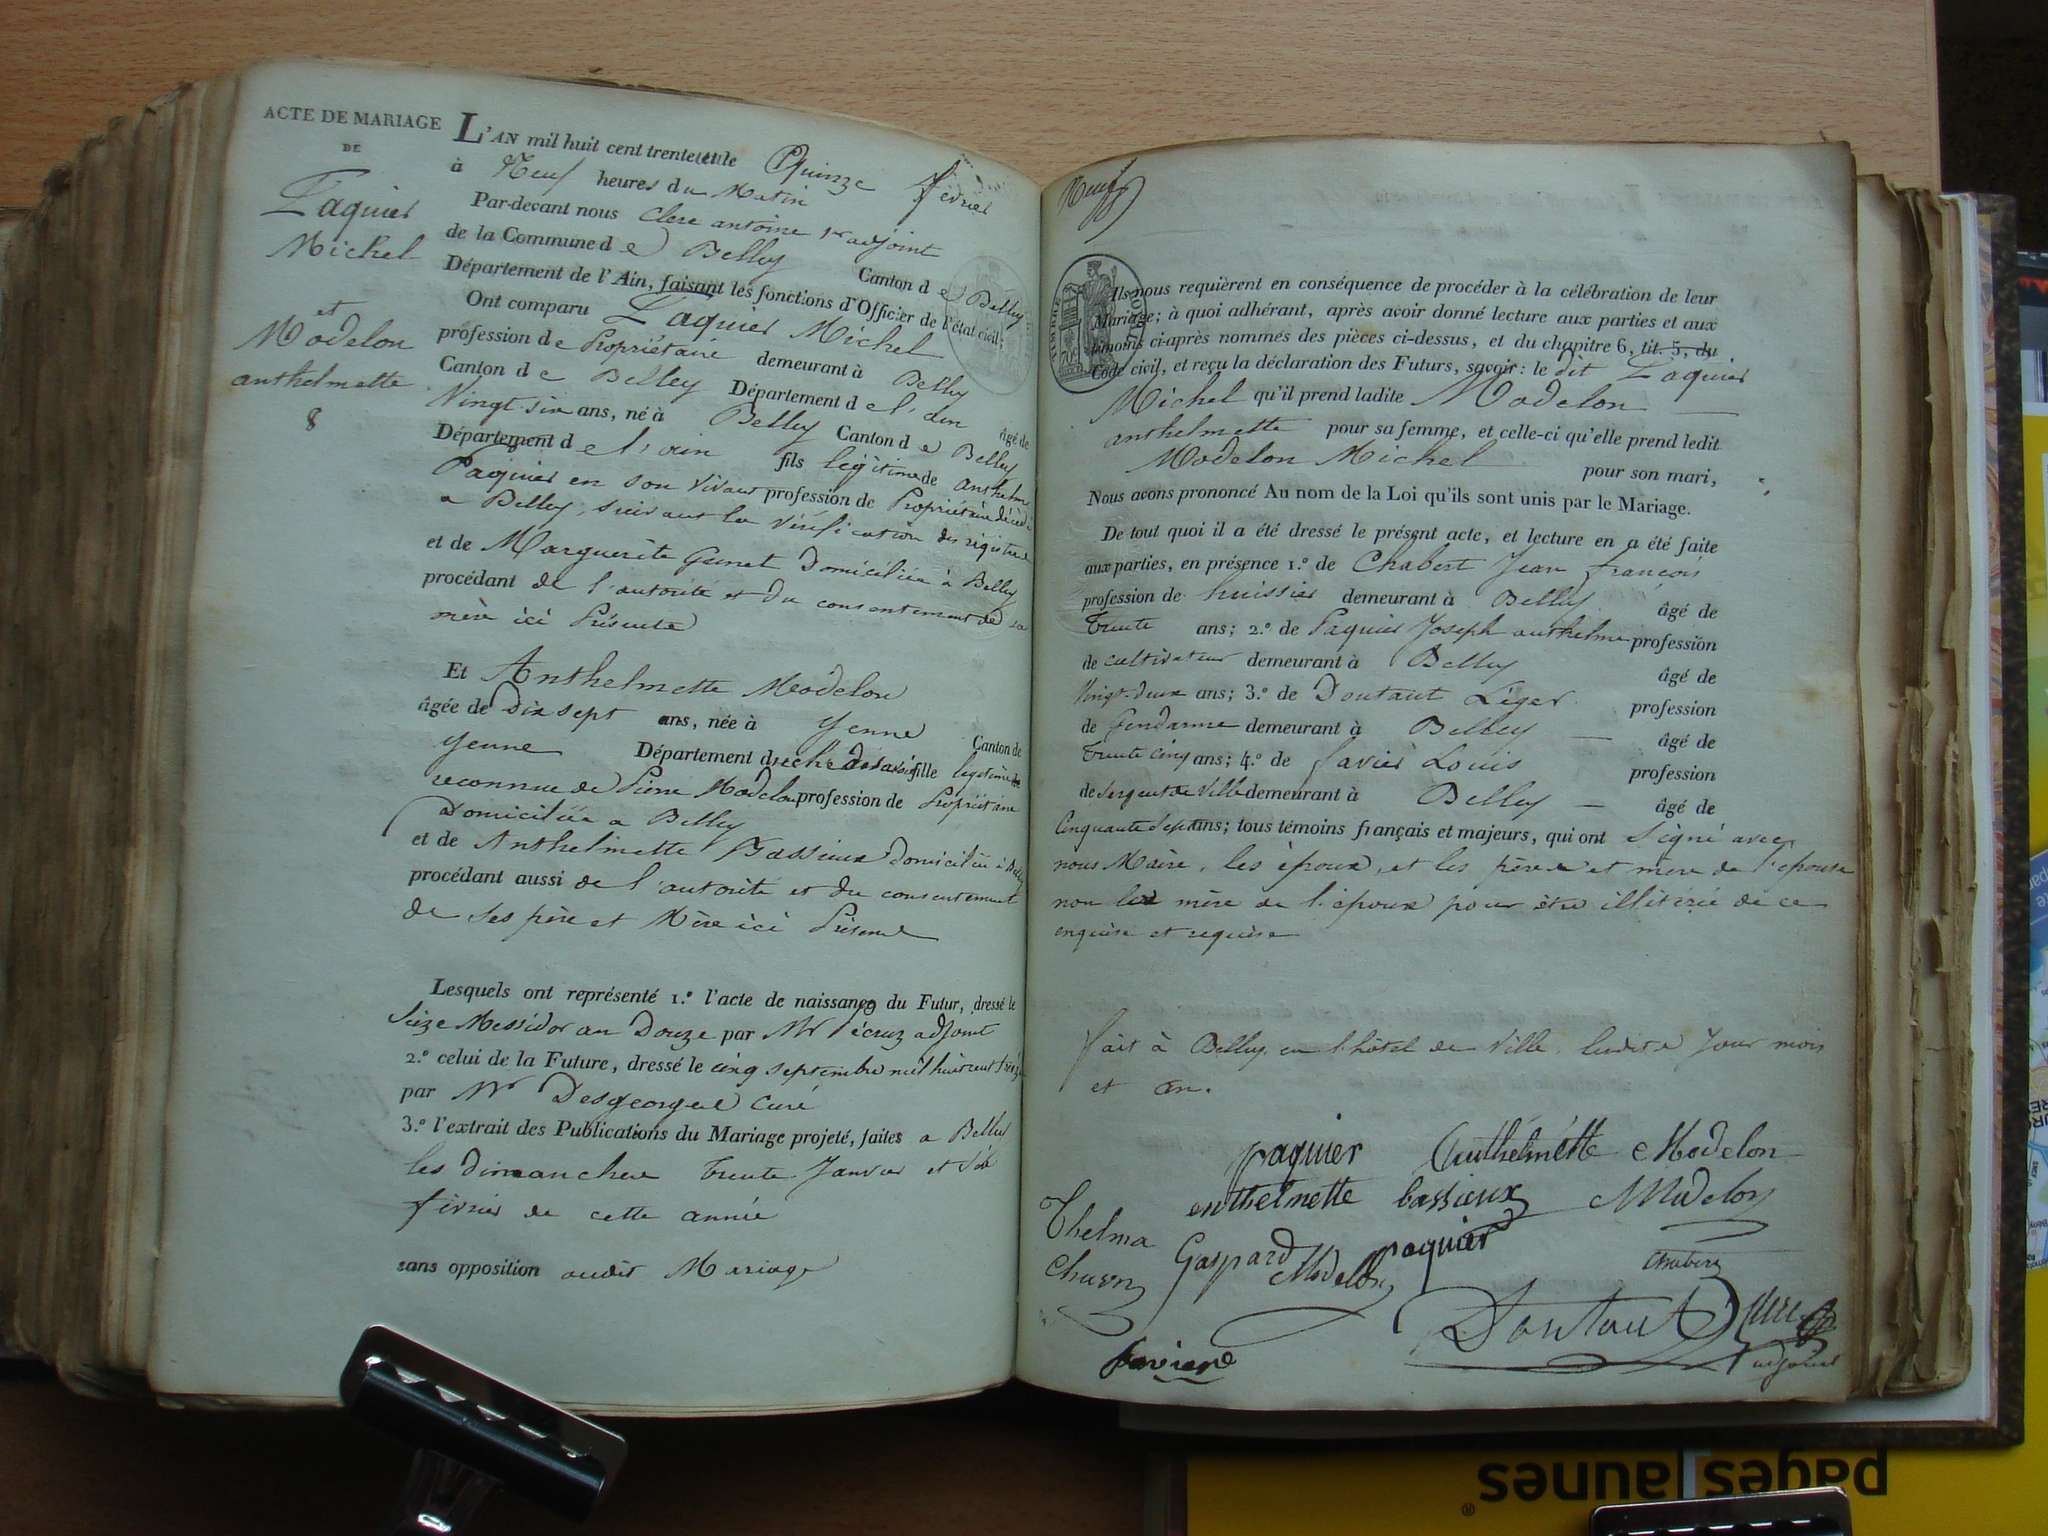 ACTE DE MARIAGE
DE
Paquier
Michel
et
Modelon
anthelmette
8
L'AN mil huit cent trente et un le Quinze février
à Neuf heures du Matin
Par-devant nous Clerc antoine 1er adjoint
de la Commune de Belley Canton de Belley
Département de l'Ain, faisant les fonctions d'Officier de l'état civil;
Ont comparu Paquier Michel
profession de Propriétaire demeurant à Belley
Canton de Belley Département de l'ain âgé de
Vingt-six ans, né à Belley Canton de Belley
Département de l'ain fils légitime de anthelme
Paquier en son vivant profession de Propriétaire décédé
a Belley, suivant la vérification des registres
et de Marguerite Domiciliée à Belley
procédant de l'autorité et du consentement de sa
mère ici Présente
Et Anthelmette Modelon
âgée de Dix sept ans, née à Yenne Canton de
Yenne Département fille légitime
reconnue de Pierre Modelon profession de Propriétaire
Domiciliée a Belley
et de Anthelmette Bassieux domiciliée à Belley
procédant aussi de l'autorité et du consentement
de ses père et Mère ici Présens
Lesquels ont représenté 1.º l'acte de naissance du Futur, dressé le
Seize Messidor an Douze par Mr Pécruz adjoint
2.º celui de la Future, dressé le cinq septembre mil huit cent treize
par Mr Desgeorge Curé
3.º l'extrait des Publications du Mariage projeté, faites a Belley
les dimanches trente Janvier et six
février de cette année
sans opposition audit Mariage
Neuf
TIMBRE ROYAL
70c
Ils nous requièrent en conséquence de procéder à la célébration de leur
Mariage; à quoi adhérant, après avoir donné lecture aux parties et aux
témoins ci-après nommés des pièces ci-dessus, et du chapitre 6, tit. 5, du
Code civil, et reçu la déclaration des Futurs, savoir: le dit Paquier
Michel qu'il prend ladite Modelon
anthelmette pour sa femme, et celle-ci qu'elle prend ledit
Modelon Michel pour son mari,
Nous avons prononcé Au nom de la Loi qu'ils sont unis par le Mariage.
De tout quoi il a été dressé le présent acte, et lecture en a été faite
aux parties, en présence 1.º de Chabert Jean françois
profession de huissier demeurant à Belley âgé de
Trente ans; 2.º de Paquier Joseph anthelme profession
de cultivateur demeurant à Belley âgé de
Vingt-deux ans; 3.º de Doutaut Léger profession
de Gendarme demeurant à Belley âgé de
Trente cinq ans; 4.º de favier Louis profession
de Sergent de Ville demeurant à Belley âgé de
Cinquante Sept ans; tous témoins français et majeurs, qui ont Signé avec
nous Maire, les époux, et les père et mère de l'épouse
non la mère de l'époux pour être illitérée de ce
enquise et requise
fait à Belley en l'hôtel de Ville, lesdits Jour mois
et an.
paquier Anthelmette Modelon
enthelmette bassieux Modelon
Thelma Gaspard paquier
Modelon Chabert
Doutaut Clerc
favier adjoint
pages jaunes®